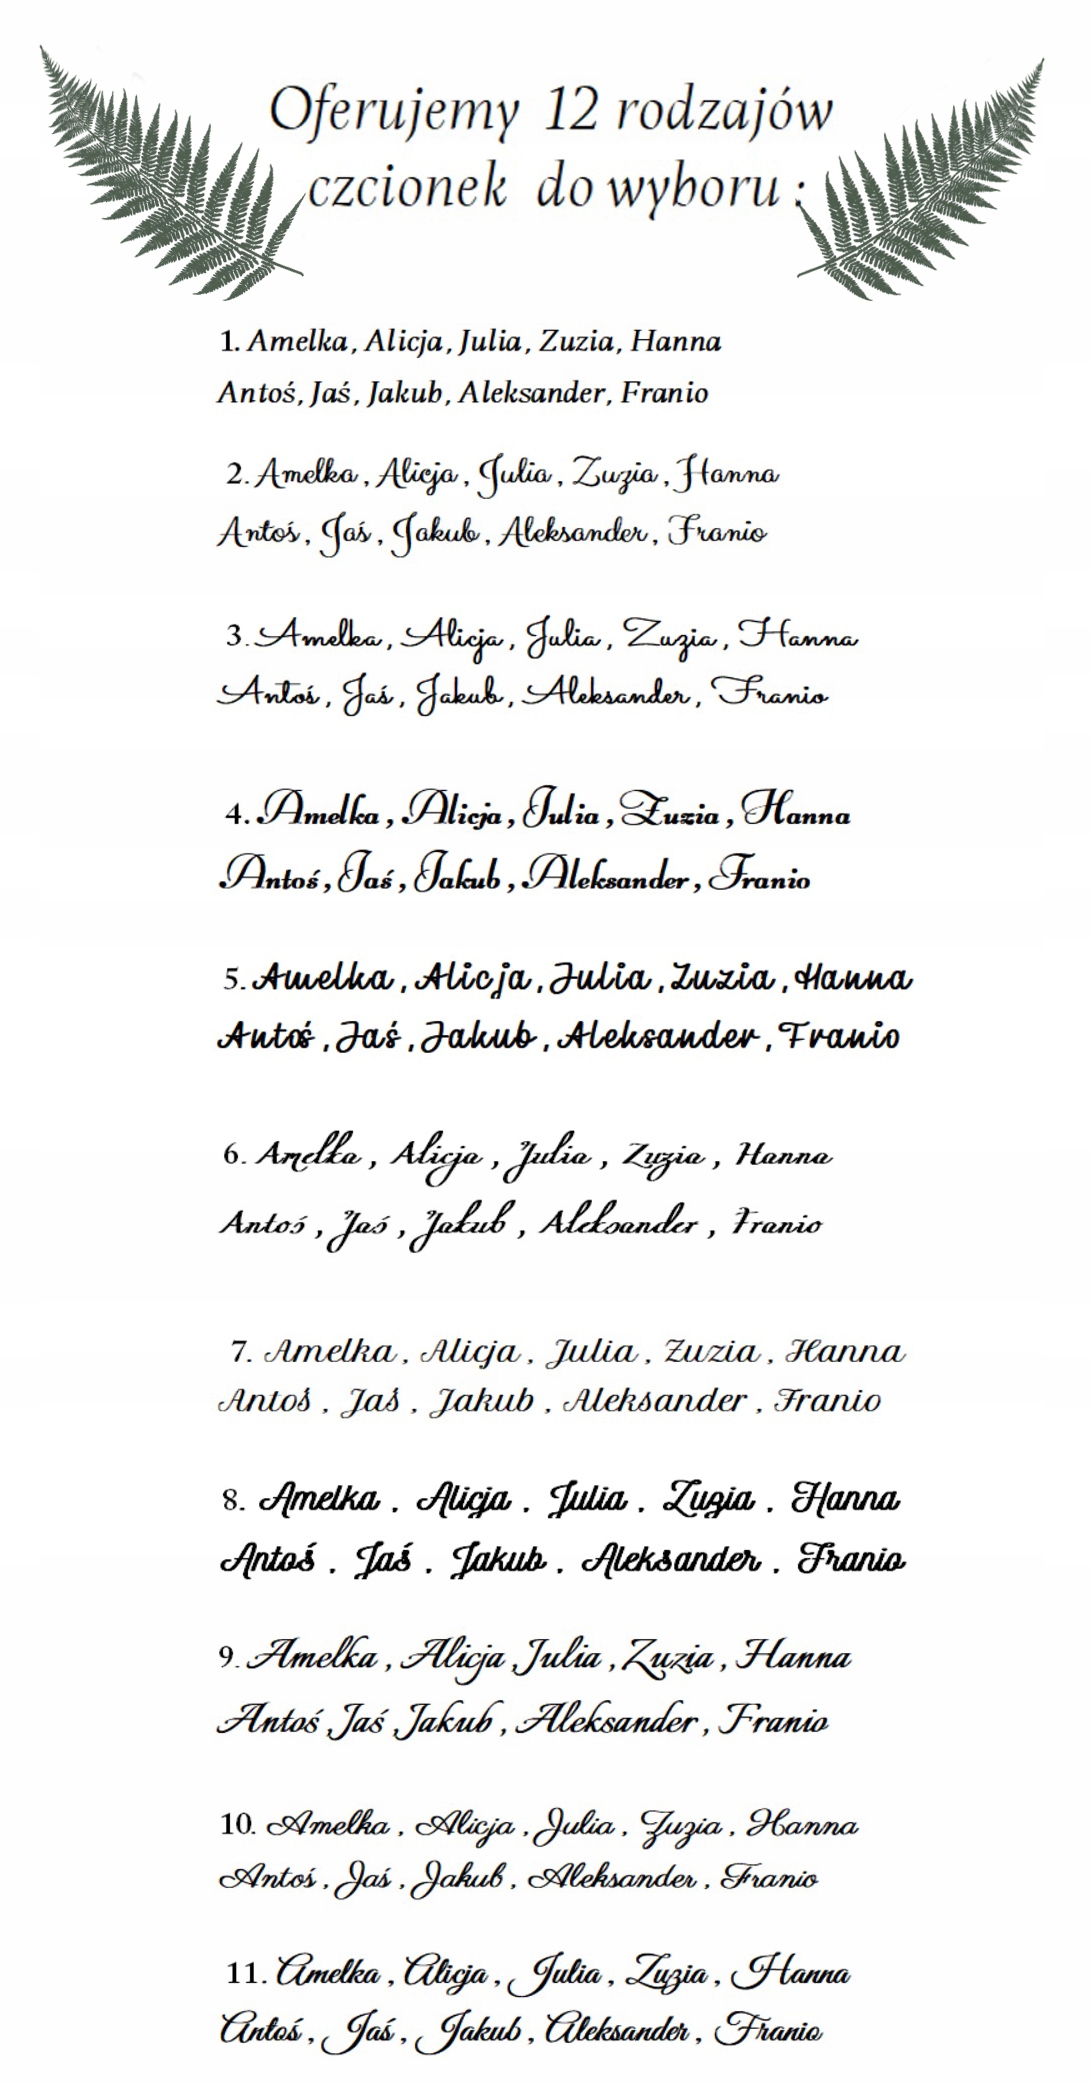 Oferujemy 12 rodzajów
czcionek do wyboru :
1. Amelka, Alicja, Julia, Zuzia, Hanna
Antoś, Jaś, Jakub, Aleksander, Franio
2. Amelka, Alicja, Julia, Zuzia, Hanna
Antoś, Jaś, Jakub, Aleksander, Franio
3. Amelka, Alicja, Julia, Zuzia, Hanna
Antoś, Jaś, Jakub, Aleksander, Franio
4. Amelka, Alicja, Julia, Zuzia, Hanna
Antoś, Jaś, Jakub, Aleksander, Franio
5. Amelka, Alicja, Julia, Zuzia, Hanna
Antoś, Jaś, Jakub, Aleksander, Franio
6. Amelka , Alicja , Julia , Zuzia , Hanna
Antoś , Jaś , Jakub , Aleksander , Franio
7. Amelka , Alicja , Julia , Zuzia , Hanna
Antoś , Jaś , Jakub , Aleksander , Franio
8. Amelka . Alicja . Julia . Zuzia . Hanna
Antoś . Jaś . Jakub . Aleksander . Franio
9. Amelka , Alicja , Julia , Zuzia , Hanna
Antoś , Jaś , Jakub , Aleksander , Franio
10. Amelka , Alicja , Julia , Zuzia , Hanna
Antoś , Jaś , Jakub , Aleksander , Franio
11. Amelka , Alicja , Julia , Zuzia , Hanna
Antoś , Jaś , Jakub , Aleksander , Franio